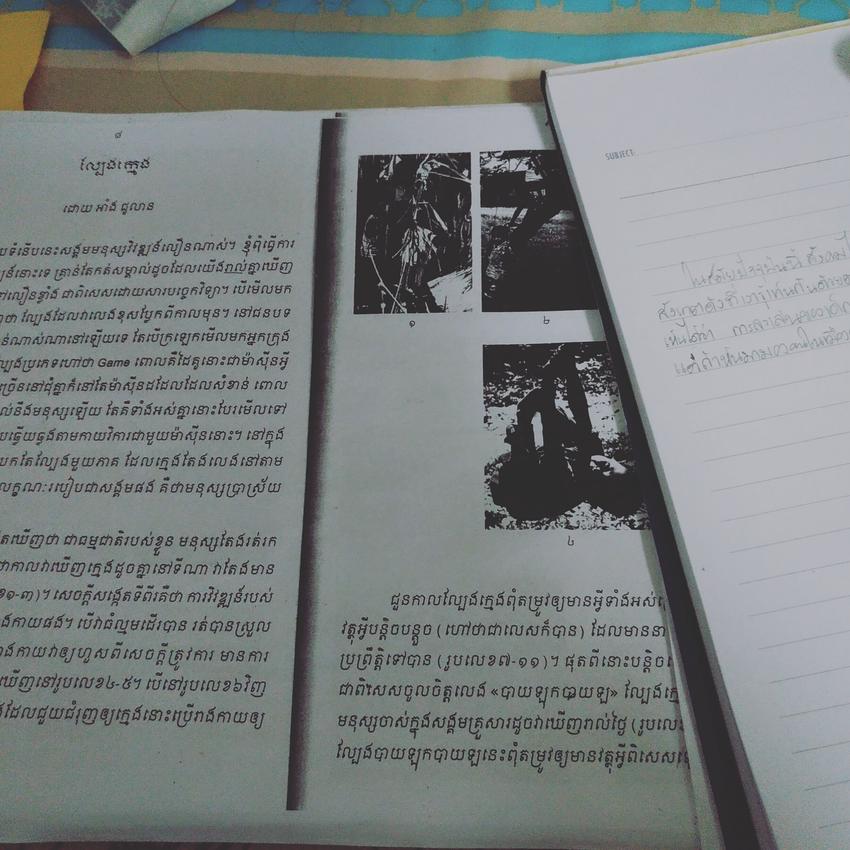 ៨
ល្បែងក្មេង
ដោយ អាំង ជូលាន
បទំនើបនេះសង្គមមនុស្សវិវឌ្ឍន៍លឿនណាស់។ ខ្ញុំពុំធ្វើការ
ឌ្ឍន៍នោះទេ គ្រាន់តែកត់សម្គាល់ដូចដែលយើងរាល់គ្នាឃើញ
លឿនខ្លាំង ជាពិសេសដោយសារបច្ចេកវិទ្យា។ បើមើលមក
ថា ល្បែងដែលវាលេងខុសប្លែកពីកាលមុន។ នៅជនបទ
ណាស់ណានៅឡើយទេ តែបើក្រឡេកមើលមកអ្នកក្រុង
ល្បែងប្រភេទហៅថា Game ពោលគឺដៃគូនោះជាម៉ាស៊ីនអ្វី
ច្រើននៅជុំគ្នាក៏នៅតែម៉ាស៊ីនដដែលដែលសំខាន់ ពោល
ល់នឹងមនុស្សឡើយ តែគឺទាំងអស់គ្នានោះបែរមើលទៅ
បឆ្លើយឆ្លងតាមកាយវិការជាមួយម៉ាស៊ីននោះ។ នៅក្នុង
បកតែល្បែងមួយភាគ ដែលក្មេងតែងលេងនៅតាម
លក្ខណៈរបៀបជាសង្គមផង គឺថាមនុស្សប្រាស្រ័យ
តឃើញថា ជាធម្មជាតិរបស់ខ្លួន មនុស្សតែងរត់រក
ជាកាលវាឃើញក្មេងដូចគ្នានៅទីណា វាតែងមាន
ខ១-៣)។ សេចក្តីសង្កេតទីពីរគឺថា ការវិវឌ្ឍន៍របស់
ងកាយផង។ បើវាធំល្មមដើរបាន រត់បានស្រួល
ងកាយវាឲ្យហួសពីសេចក្តីត្រូវការ មានការ
ឃើញនៅរូបលេខ៤-៥។ បើនៅរូបលេខ៦វិញ
ងដែលជួយជំរុញឲ្យក្មេងនោះប្រើរាងកាយឲ្យ
១
២
៤
ជួនកាលល្បែងក្មេងពុំតម្រូវឲ្យមានអ្វីទាំងអស់
វត្ថុអ្វីបន្តិចបន្តួច (ហៅថាជាលេសក៏បាន) ដែលមាននា
ប្រព្រឹត្តិទៅបាន (រូបលេខ៧-១១)។ ផុតពីនោះបន្តិច
ជាពិសេសចូលចិត្តលេង «បាយឡុកបាយឡ» ល្បែងក្មេ
មនុស្សចាស់ក្នុងសង្គមគ្រួសារដូចវាឃើញរាល់ថ្ងៃ (រូបលេ
ល្បែងបាយឡុកបាយឡនេះពុំតម្រូវឲ្យមានវត្ថុអ្វីពិសេស
SUBJECT:
ในสมัยปัจจุบันนี้ สังคม
สังเกตดังที่เรารู้เห็นกัน
เห็นได้ว่า การละเล่นของเด็ก
แต่ถ้าหันมามอง